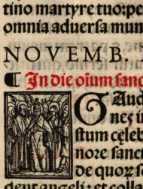 tino martyre tuo:pe
omnia aduersa mun
NOVEMB.
¶ In die oium sanc
GAud
nes i
stum celeb
nore sanct
de quoꝝ s
dent angeli: et colla